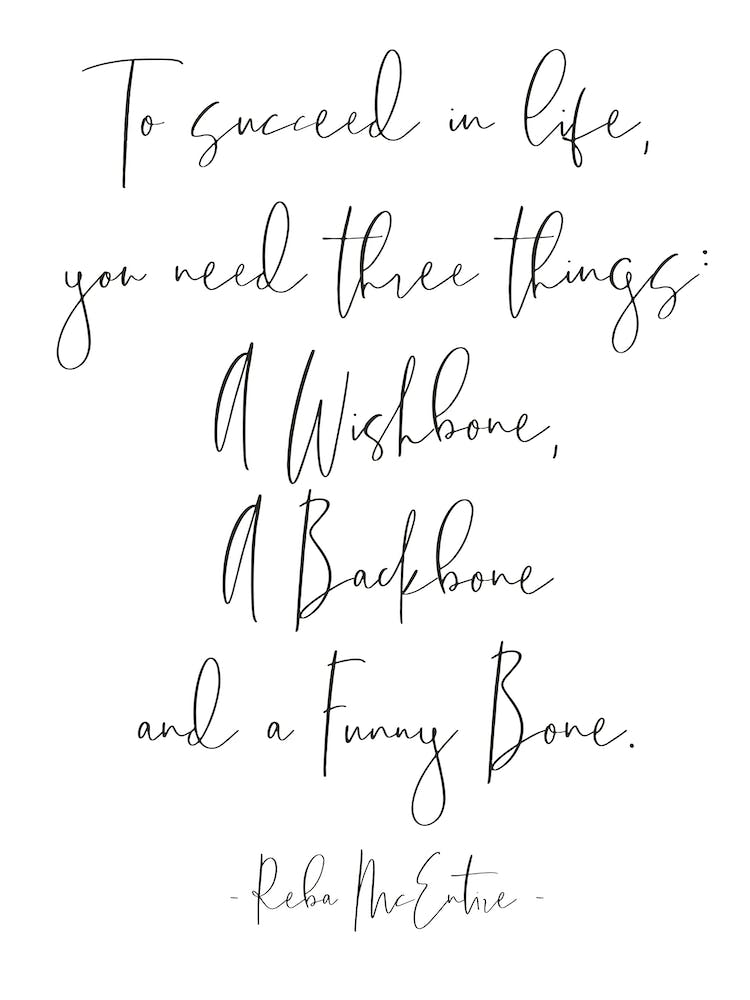 To succeed in life,
you need three things:
A Wishbone,
A Backbone
and a Funny Bone.
- Reba McEntire -